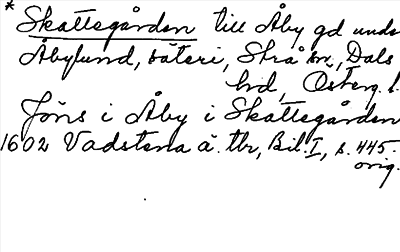 * Skattegården till Åby gd under
Åbylund, säteri, Strå sn, Dals
hd, Österg. l.
Jöns i Åby i Skattegården
1602 Vadstena ä. tbr, Bil. I, s. 445.
orig.